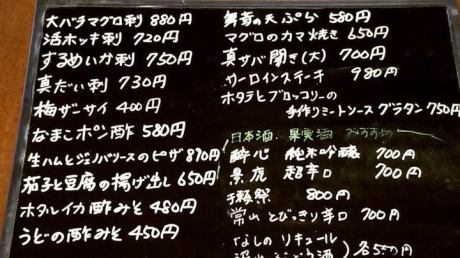 大バラマグロ刺 880円
活ホッキ刺 720円
するめいか刺 750円
真だい刺 730円
梅ザーサイ 400円
なまこポン酢 580円
生ハムとジェノバソースのピザ 890円
茄子と豆腐の揚げ出し 650円
ホタルイカ酢みそ 480円
うどの酢みそ 450円
舞茸の天ぷら 580円
マグロのカマ焼き 650円
真サバ開き(大) 700円
サーロインステーキ 980円
ホタテとブロッコリーの
手作りミートソースグラタン 750円
日本酒、果実酒 おすすめ
酔心 純米吟醸 700円
景虎 超辛口 700円
獺祭 800円
常山 とびっきり辛口 700円
なしのリキュール
各550円